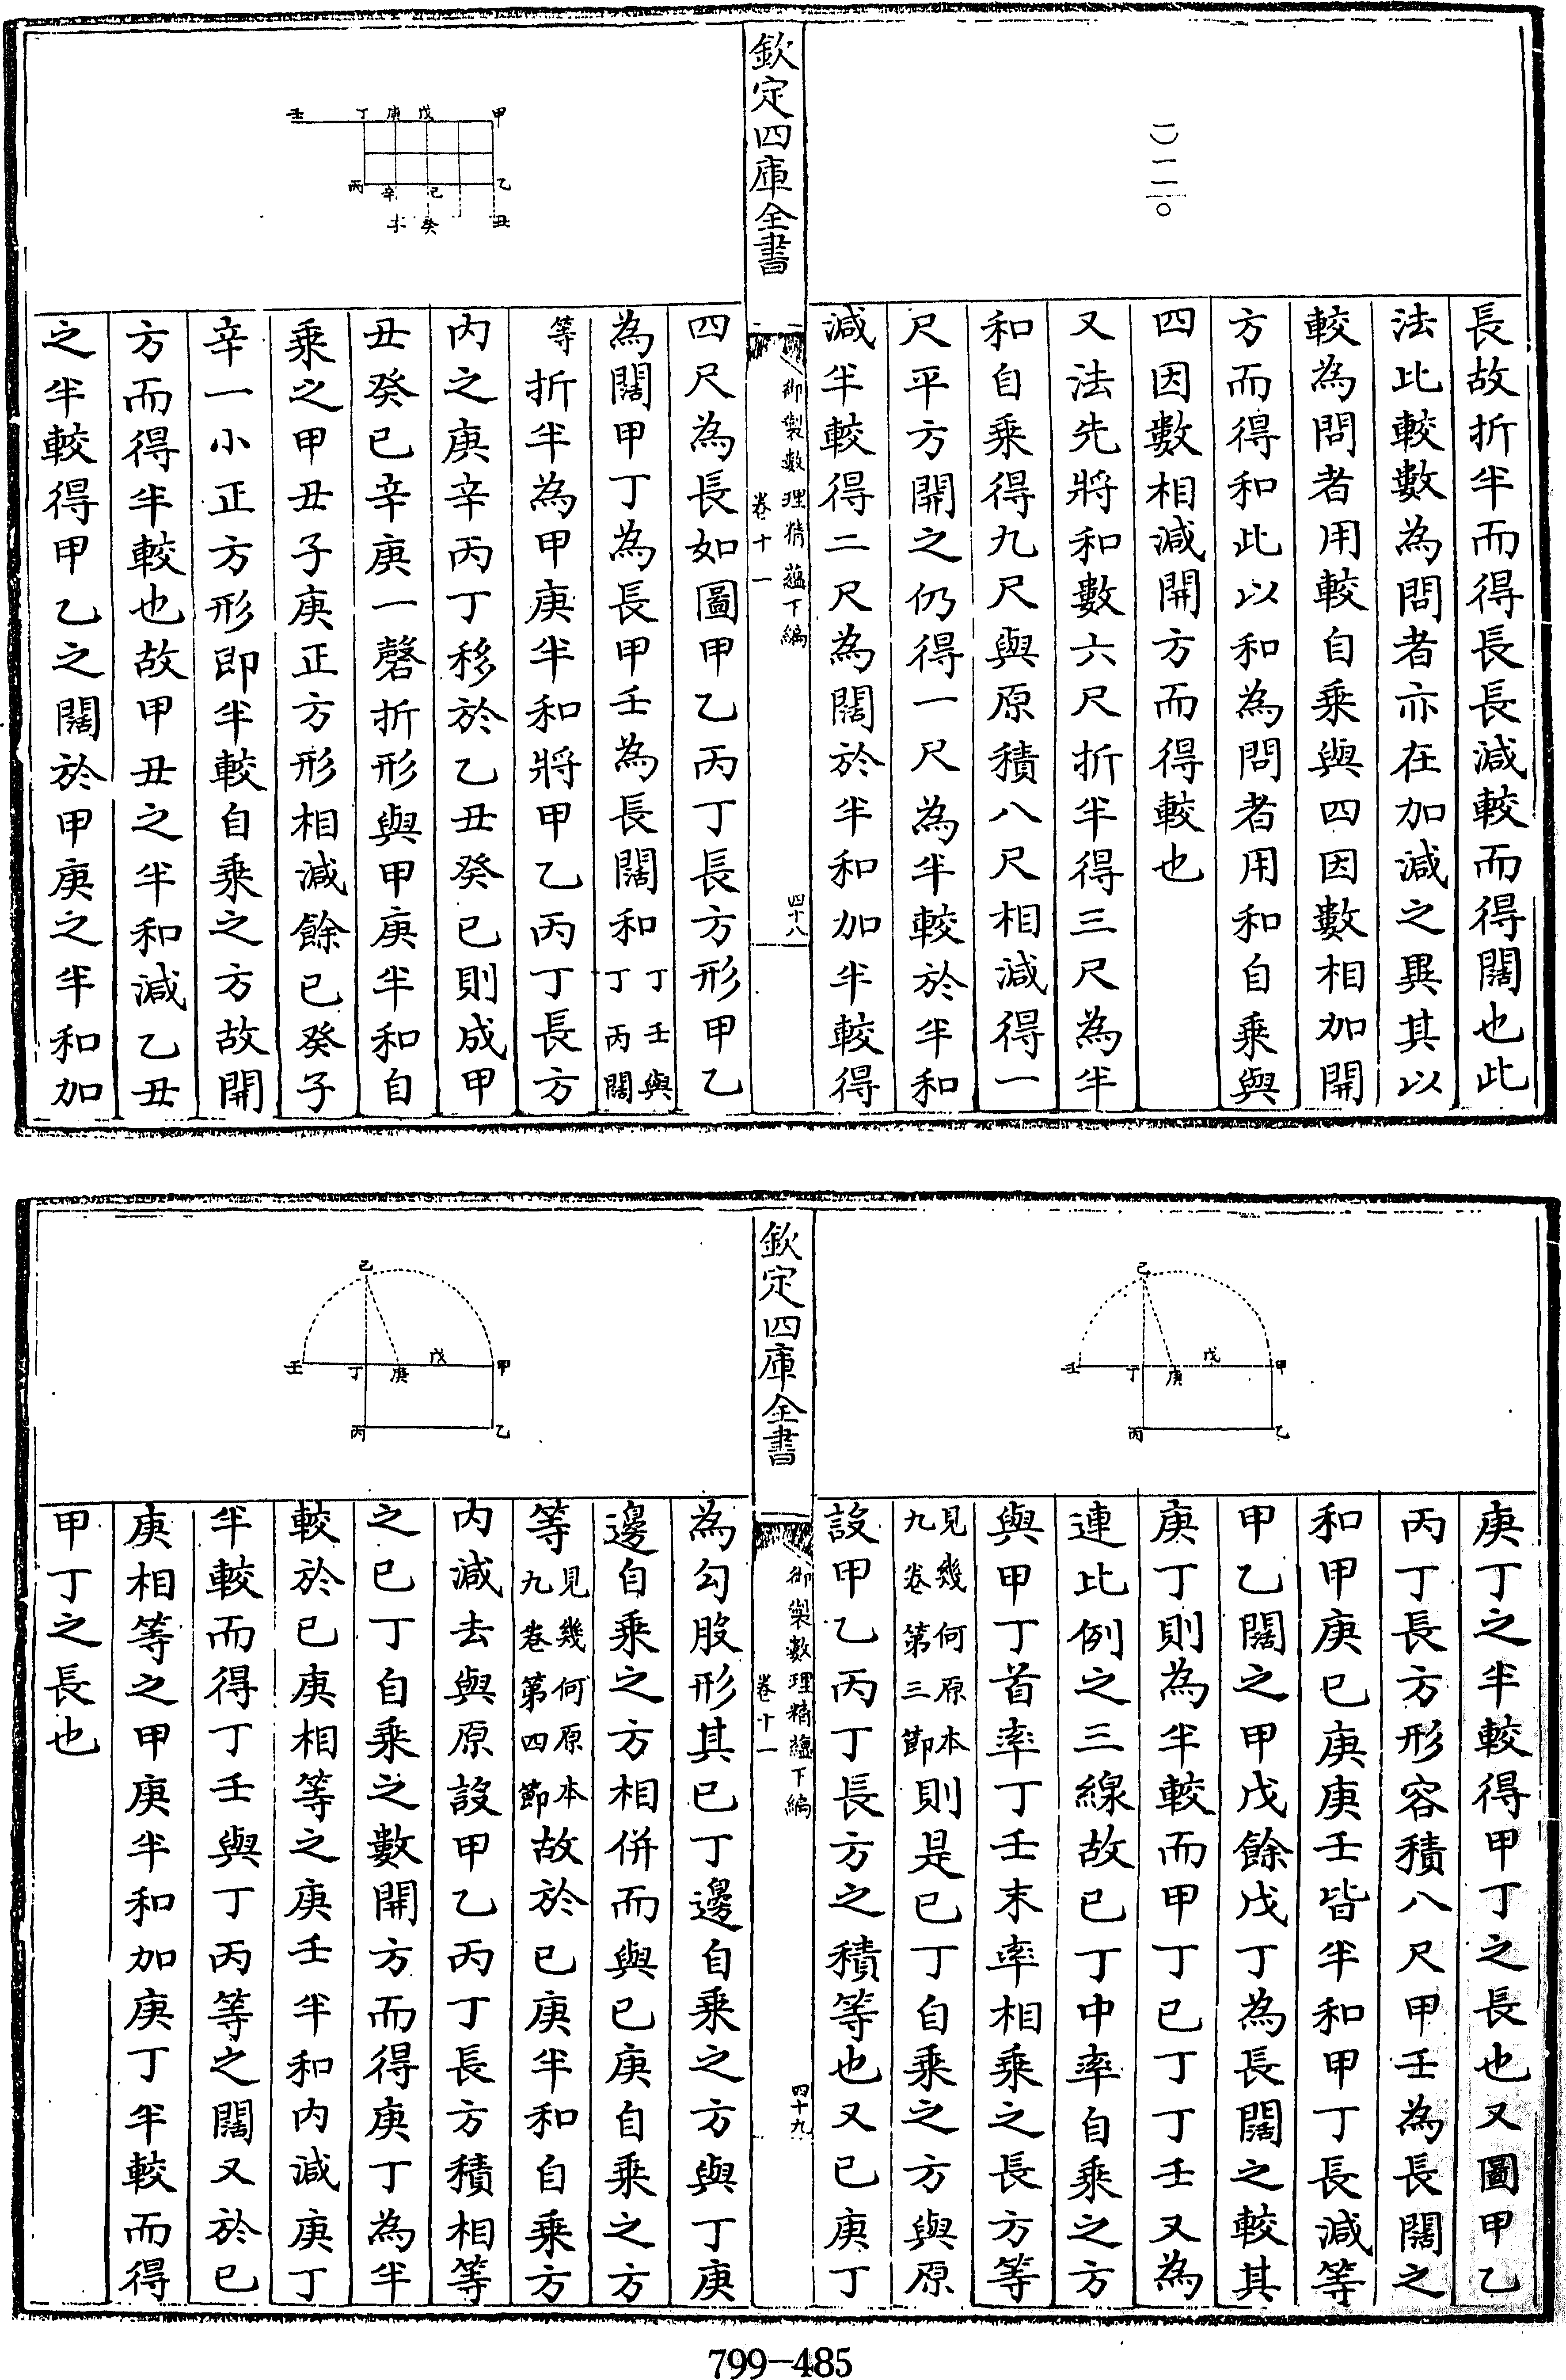 二〇一二
一〇
長故折半而得長長減較而得闊也此
法此較數為問者亦在加減之異其以
較為問者用較自乘與四因數相加開
方而得和此以和為問者用和自乘與
四因數相減開方而得較也
又法先將和數六尺折半得三尺為半
和自乘得九尺與原積八尺相減得一
尺平方開之仍得一尺為半較於半和
減半較得二尺為闊於半和加半較得
欽定四庫全書
御製數理精蘊下編
卷十一
四十八
壬 丁 庚 戊 甲
丙 辛 己 乙
子 癸 丑
四尺為長如圖甲乙丙丁長方形甲乙
為闊甲丁為長甲壬為長闊和丁壬與丁丙闊
等折半為甲庚半和將甲乙丙丁長方
内之庚辛丙丁移於乙丑癸已則成甲
丑癸已辛庚一磬折形與甲庚半和自
乘之甲丑子庚正方形相減餘已癸子
辛一小正方形即半較自乘之方故開
方而得半較也故甲丑之半和減乙丑
之半較得甲乙之闊於甲庚之半和加
己
壬 丁 庚 戊 甲
丙 乙
庚丁之半較得甲丁之長也又圖甲乙
丙丁長方形容積八尺甲壬為長闊之
和甲庚已庚庚壬皆半和甲丁長減等
甲乙闊之甲戊餘戊丁為長闊之較其
庚丁則為半較而甲丁已丁丁壬又為
連比例之三線故已丁中率自乘之方
與甲丁首率丁壬末率相乘之長方等
見幾何原本九卷第三節則是已丁自乘之方與原
設甲乙丙丁長方之積等也又已庚丁
欽定四庫全書
御製數理精蘊下編
卷十一
四十九
己
壬 丁 庚 戊 甲
丙 乙
為勾股形其已丁邊自乘之方與丁庚
邊自乘之方相併而與已庚自乘之方
等見幾何原本九卷第四節故於已庚半和自乘方
内減去與原設甲乙丙丁長方積相等
之已丁自乘之數開方而得庚丁為半
較於已庚相等之庚壬半和内減庚丁
半較而得丁壬與丁丙等之闊又於已
庚相等之甲庚半和加庚丁半較而得
甲丁之長也
799-485